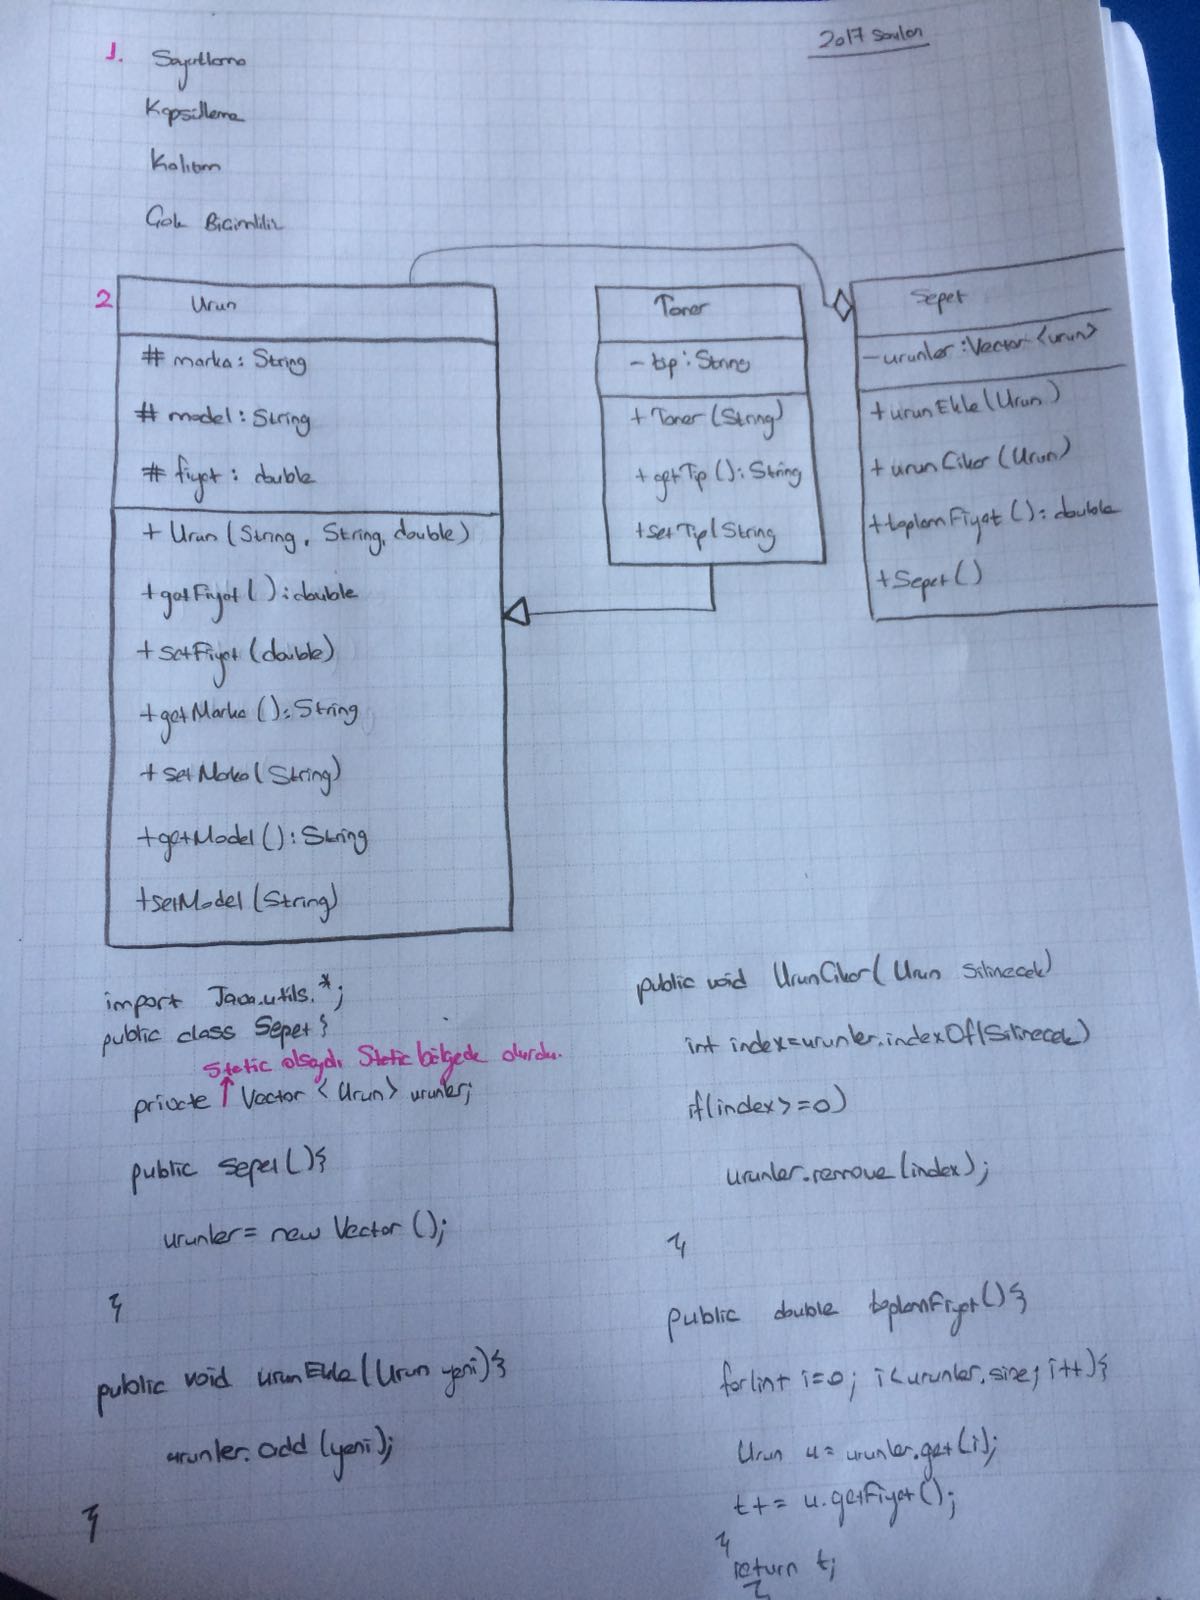 2017 Soruları
1. Soyutlama
Kapsülleme
Kalıtım
Çok Biçimlilik
2
Urun
# marka: String
# model: String
# fiyat: double
+ Urun (String, String, double)
+getFiyat(): double
+setFiyat(double)
+getMarka(): String
+setMarka(String)
+getModel(): String
+setModel(String)
Toner
- tip: String
+ Toner (String)
+ getTip(): String
+setTip(String
Sepet
-urunler: Vector <urun>
+urunEkle(Urun)
+urunCikar(Urun)
+toplamFiyat(): double
+Sepet()
import Java.utils.*;
public class Sepet{
Static olsaydı Static bölgede olurdu.
private ↑ Vector <Urun> urunler;
public Sepet(){
urunler= new Vector();
}
public void urunEkle(Urun yeni){
urunler.add(yeni);
}
public void UrunCikar(Urun Silinecek)
int index=urunler.indexOf(Silinecek)
if(index>=0)
urunler.remove(index);
}
public double toplamFiyat(){
for(int i=0; i<urunler.size; i++){
Urun u= urunler.get(i);
t+= u.getFiyat();
}
return t;
}